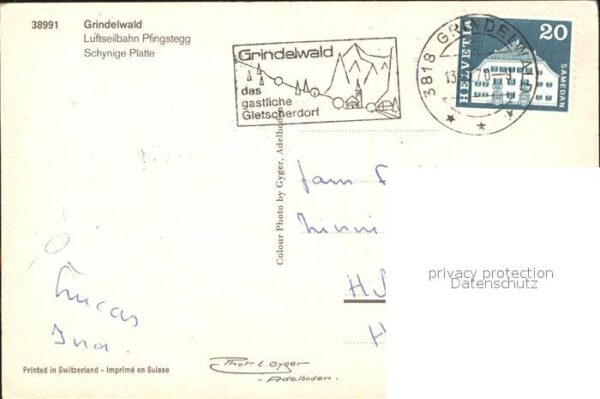 38991 Grindelwald
Luftseilbahn Pfingstegg
Schynige Platte
Grindelwald
das
gastliche
Gletscherdorf
3818 GRINDELWALD
HELVETIA
20
SAMEDAN
Colour Photo by Gyger, Adelboden
Fam
privacy protection
Datenschutz
H.
Printed in Switzerland - Imprimé en Suisse
Phot E. Gyger
- Adelboden.